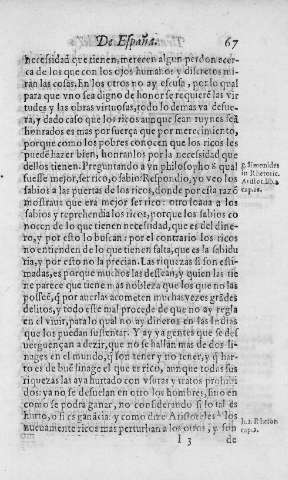 De España. 67
necessidad que tienen, merecen algun perdon acer-
ca de los que con los ojos humanos y discretos mi-
ran las cosas. En los otros no ay escusa, por lo qual
para que vno sea digno de honor se requiere las vir
tudes y las obras virtuosas, todo lo demas va defue-
ra, y dado caso que los ricos aunque sean ruynes seã
honrados es mas por fuerça que por merecimiento,
porque como los pobres conocen que los ricos les
puedẽ hazer bien, honranlos por la necessidad que
dellos tienen. Preguntando a vn philosopho g qual
fuesse mejor, ser rico, o sabio? Respondio, yo veo los
sabios a las puertas de los ricos, donde por esta razõ
mostraua que era mejor ser rico: otro loaua a los
sabios y reprehendia los ricos, porque los sabios co
nocen de lo que tienen necessidad, que es del dine-
ro, y por esto lo buscan: por el contrario los ricos
no entienden de lo que tienen falta, que es la sabidu
ria, y por esto no la precian. Las riquezas si son esti-
madas, es porque muchos las dessean, y quien las tie
ne parece que tiene mas nobleza que los que no las
possẽẽ, q̃ por auerlas acometen muchas vezes grãdes
delitos, y todo este mal procede de que no ay regla
en el viuir, para lo qual no ay dineros en las Indias
que los puedan sustentar. Y ay ya gentes que se des
verguençan a dezir, que no se hallan mas de dos li-
nages en el mundo, q̃ son tener y no tener, y q̃ har-
to es de buẽ linage el que es rico, aunque todas sus
riquezas las aya hurtado con vsuras y tratos prohibi
dos: ya no se desuelan en otro los hombres, sino en
como se podra ganar, no considerando si lo tal es
hurto, o si es ganãcia: y como dize Aristoteles h los
nueuamente ricos mas perturban a los otros, y son
g. Simonides
in Rhetoric.
Aristot. lib. 2
cap. 16.
h. 2. Rhetor.
cap. 2.
I 3 de